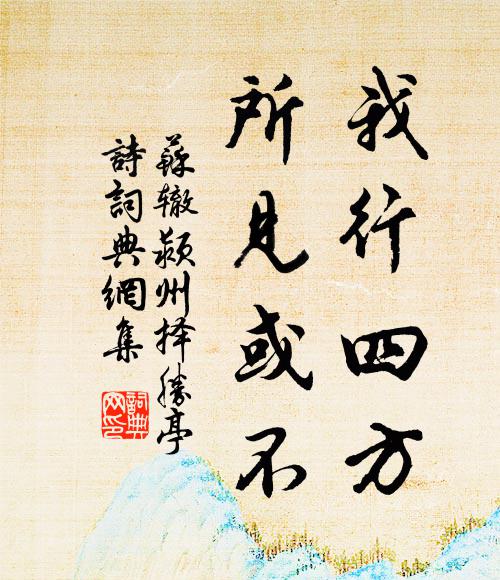 我行四方
所見或不
蘇辙颍州择勝亭
詩詞典網集
詞典网印